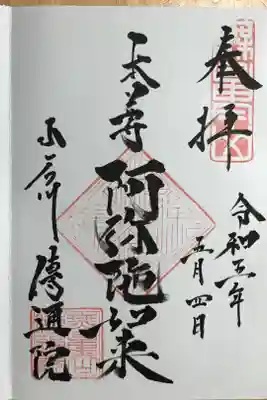 奉拝
令和五年
五月四日
本尊 阿弥陀如来
小石川
傳通院